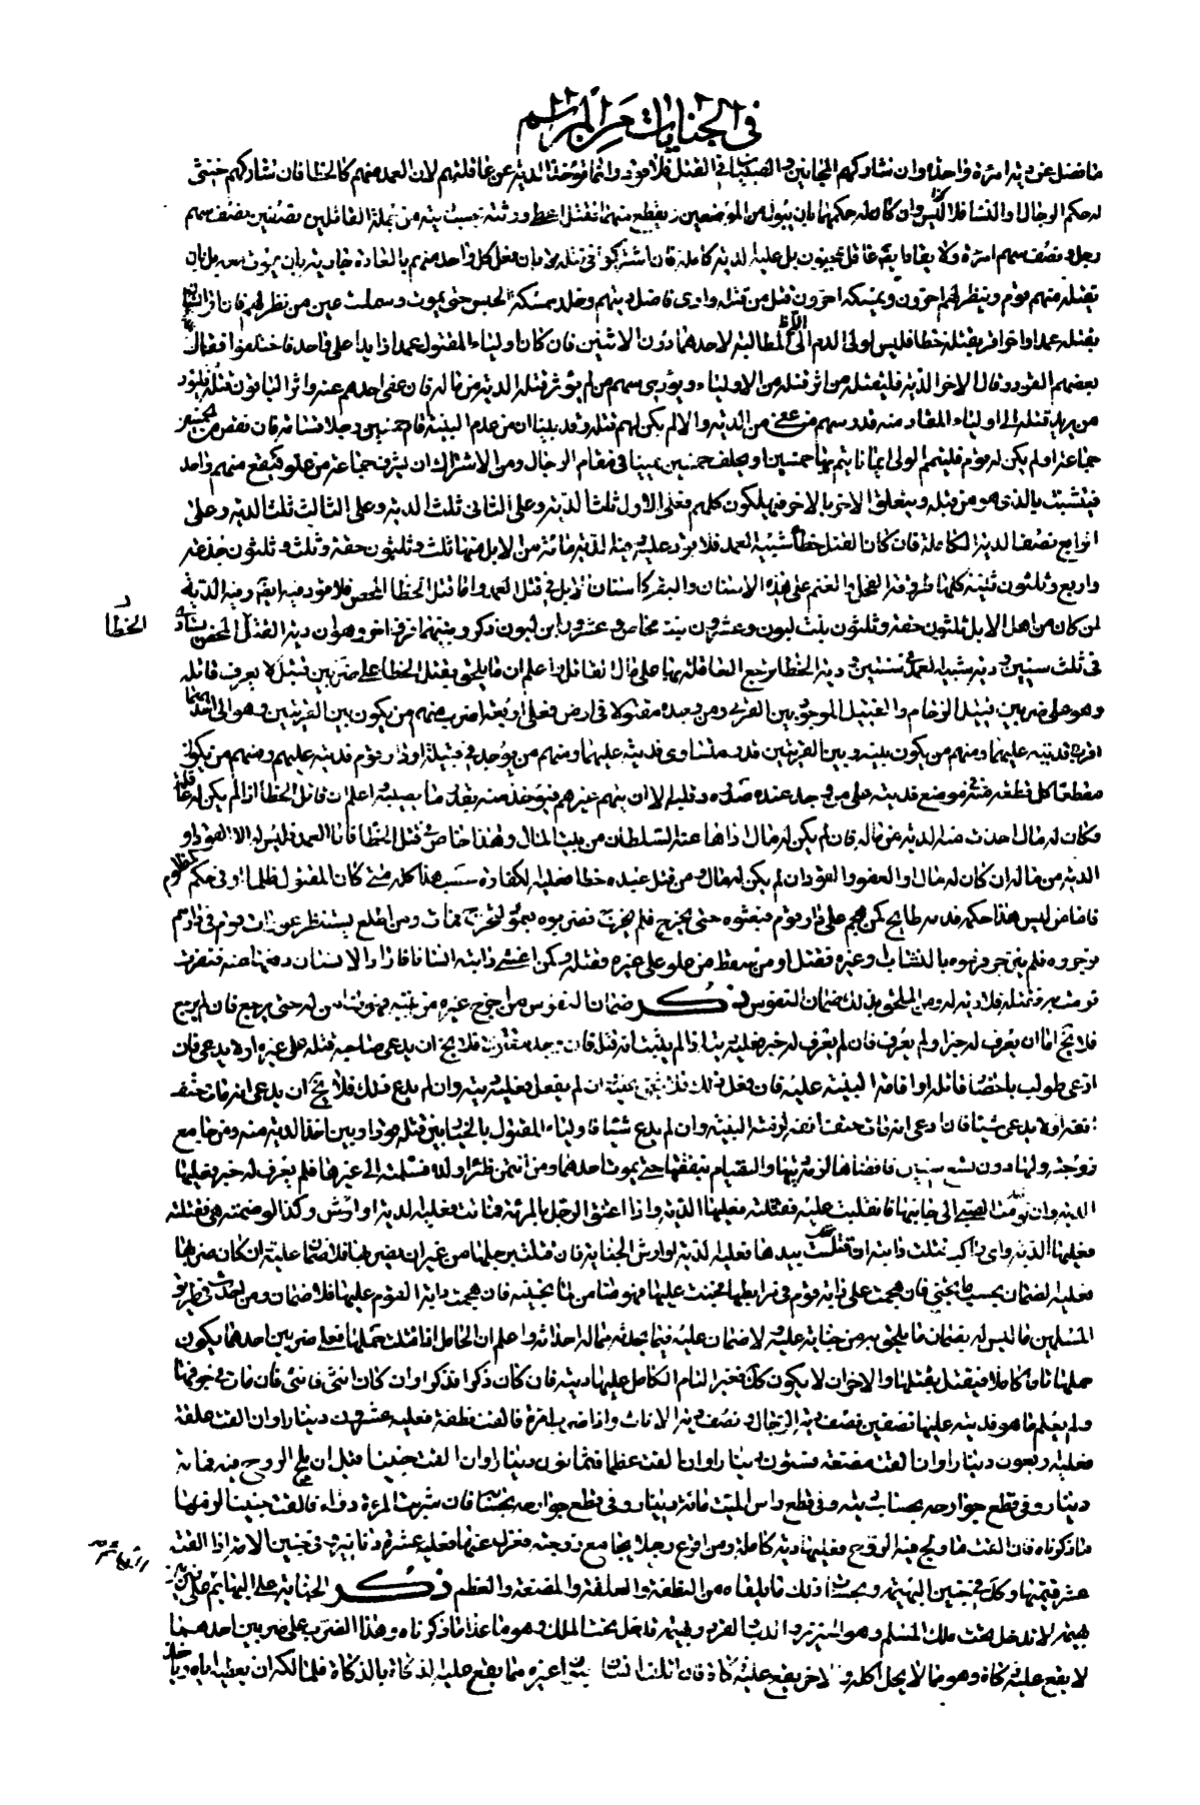 في الجنايات من المراسم
ما فضل عن دية امرءة واحدة وان شاركهم المجانين والصبيان في القتل فلا قود وانما تؤخذ الدية عن عاقلتهم لان العمد منهم كالخطا فان شاركهم خنثى
له حكم الرجال او النسا وان كان له حكمهما بان يبول من الموضعين ينقطع منهما تقتل اعط ورثته بحسب ديته من جملة القاتلين نصفين نصف سهم
رجل ونصف سهم امرءة ولا يقاد عاقل بمجنون بل عليه الدية كاملة فان اشتركوا في قتله بان فعل كل واحد منهم بالعادة جارية بان يموت بل بان
يقتله منهم قوم وينظر لهم اخرون ويمسكه اخرون قتل من قتله وادى فاضل ديتهم وخلد ممسكه الحبس حتى يموت وسملت عين من نظر لهم فان اقر انسان
بقتله عمدا واخر اقر بقتله خطا فليس لولى الدم المطالبة لاحدهما دون الاثنين فان كان اولياء المقتول عمدا ازيدا على واحد فاختلفوا فقال
بعضهم القود وقال الاخر الدية فليقتله من اثر قتله من الاولياء ويؤدى سهم من لم يؤثر قتله الدية من ماله فان عفى احدهم عنه واثر الباقون قتله فليؤد
من يريد قتله الى اولياء المقاد منه قدر سهم من عفى من الدية والا لم يكن لهم قتله وقد بينا ان من عدم البينة قام خمسين رجلا قسامة فان نقص من الخمسين
جماعة او لم يكن له قوم فليتمم الولى ايمانا يتم بها خمسين او يحلف خمسين يمينا في مقام الرجال ومن الاشتراك ان يشرف جماعة من علو فيقع منهم واحد
فيتشبث بالذى هو من قبله ويتعلق الاخر بالاخر فيهلكون كلهم فعلى الاول ثلث الدية وعلى الثانى ثلث الدية وعلى الثالث ثلث الدية وعلى
الرابع نصف الدية الكاملة فان كان القتل خطأ شبيه العمد فلا قود عليه فيه الدية مائة من الابل منها ثلث وثلثون حقة وثلث وثلثون جذعة
واربع وثلثون ثنية كلها طروقة الفحل والغنم على هذه الاسنان والبقر كاسنان الابل في قتل العمد واما قتل الخطا المحض فلا قود فيه ايضا وفيه الدية
لمن كان من اهل الابل ثلثون حقة وثلثون بنت لبون وعشرون بنت مخاض وعشرون ابن لبون ذكر وبينهما فرق اخر وهو ان دية القتل المحض يستأدى
الخطأ
في ثلث سنين ودية شبيه العمد في سنتين ودية الخطا يرجع العاقلة بها على مال القاتل اعلم ان ما يلحق بقتل الخطا على ضربين قتيل لا يعرف قاتله
وهو على ضربين قتيل الزحام والقتيل الموجود بين القرى ومن وجد مقتولا في ارض فعلى اربعة اضرب منهم من يكون بين القريتين وهو الى احديهما
اقرب فديته عليهما ومنهم من يكون بينه وبين القريتين قدر متساوى فديته عليهما ومنهم من يوجد في قبيلة او دار قوم فديته عليهم ومنهم من يكون
مقطعا كل قطعة منه في موضع فديته على من وجد عنده صدره وقلبه الا ان يتهم غيرهم فيؤخذ منه بقدر ما يصيبه اعلم ان قاتل الخطأ اذا لم يكن له عاقلة
وكان له مال اخذت منه الدية عن ماله فان لم يكن له مال اداها عنه السلطان من بيت المال وهذا خاص في قتل الخطا فاما العمد فليس له الا القود او
الدية من ماله ان كان له مال او العفو والقود ان لم يكن له مال ومن قتل عبده خطأ فعليه الكفارة سبب هذا كله متى كان المقتول ظلما او في حكم المظلوم
فاما من ليس هذا حكمه فدمه طايح كمن هجم على دار قوم فبعثوه حتى يخرج فلم يخرج فضربوه بعمود ليخرج فمات ومن اطلع يستنظر عورات قوم في دارهم
فزجروه فلم ينزجر فرموه بالنشاب وغيره فقتل او من سقط من علو على غيره فقتله ومن غشى دابته انسانا فاراد الانسان دفعها عنه فنفرت
فرمت به وقتله فلا دية له ومن الملحق بذلك ضمان النفوس ذكر ضمان النفوس من اخرج غيره من بيته فهو ضامن له حتى يرجع فان لم يرجع
فلا يخ اما ان يعرف له خبرا ولم يعرف فان لم يعرف له خبر فعليه ديته اذا لم يثبت انه قتل فان وجد مقتولا فلا يخ ان يدعى صاحبه قتله على غيره او لا يدعى فان
ادعى طولب باحضار قاتله او اقامة البينة عليه فان فعل ذلك فلا شئ عليه وان لم يفعل فعليه ديته وان لم يدع قتلا فلا يخ ان يدعى انه مات حتف
انفه او لا يدعى شيئا فان ادعى انه مات حتف انفه لزمته البينة وان لم يدع شيئا فاولياء المقتول بالخيار بين قتله قودا وبين اخذ الدية منه ومن جامع
زوجته ولها دون تسع سنين فافضاها لزمه ديتها والقيام بنفقتها حتى يموت احدهما ومن ائتمن ظئرا ولده فسلمته الى غيرها فلم يعرف له خبر فعليها
الدية وان نومت الصبى الى جانبها فانقلبت عليه فقتلته فعليها الدية واذا اعنف الرجل بامرءته فماتت فعليه الدية او ارش وكذا لو ضمته هي فقتلته
فعليها الدية واى راكب قتلت دابته او قتلت بيدها فعليه الدية او ارش الجناية فان قتلت برجلها من غير ان يضربها فلا ضمان عليه ان كان ضربها
فعليه الضمان بحسب ما تجنى فان هجمت على دابة قوم في مرابطها فجنت عليها فهو ضامن لما تجنيه فان هجمت دابة القوم عليها فلا ضمان ومن احدث في طريق
المسلمين ما ليس له يضمان ما يلحق به من جناية عليه ولا ضمان عليه فيما يحدثه مما له احداثه واعلم ان الحامل اذا قتلت بحملها فعلى ضربين احدهما يكون
حملها تاما كاملا فيقتل بقتلها والاخر ان لا يكون كك فغير التام الكامل عليها ديته فان كان ذكرا فذكر وان كان انثى فانثى فان مات في جوفها
ولم يعلم ما هو فديته عليها نصفين نصف دية الرجال ونصف دية الاناث وافا ضرب امرءة فالقت نطفة فعليه عشرون دينارا وان القت علقة
فعليه اربعون دينارا وان القت مضغة فستون دينارا وان القت عظما فثمانون دينارا وان القت جنينا قبل ان يلج الروح فيه فمائة
دينار وفي قطع جوارحه بحساب ديته وفي قطع راس الميت مائة دينار وفي قطع جوارحه بحسبها فان شربت المرءة دواء فالقت جنينا لزمها
ما ذكرناه فان القت ما ولج فيه الروح فعليها دية كاملة ومن افزع رجلا يجامع زوجته فعزل عنها فعليه عشرة دنانير وفي جنين الامة اذا القت
عشر قيمتها وكل في جنين البهيمة ويحسب ذلك ما يلقاه من النطفة والعلقة والمضغة والعظم ذكر الجناية على البهايم على ضربين
بهيمة لا تدخل تحت ملك المسلم وهو الخنزير والدب والقرد وبهيمة تدخل تحت الملك وهو ما عدا ما ذكرناه وهذا الضرب على ضربين احدهما
لا يقع عليه ذكاة وهو ما لا يحل اكله والاخر يقع عليه ذكاة فان اتلف انسان على غيره مما يقع عليه الذكاة بالذكاة فلمالكه ان يعطيه اياه وياخذ